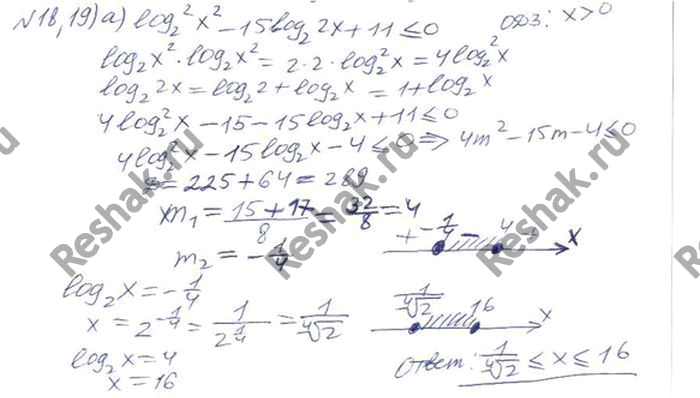 №18,19) а) log₂²x² - 15log₂2x + 11 ≤ 0  ОДЗ: x>0
log₂x²·log₂x² = 2·2·log₂²x = 4log₂²x
log₂2x = log₂2 + log₂x = 1 + log₂x
4log₂²x - 15 - 15log₂x + 11 ≤ 0
4log₂²x - 15log₂x - 4 ≤ 0 ⇒ 4m² - 15m - 4 ≤ 0
D = 225 + 64 = 289
m₁ = (15 + 17)/8 = 32/8 = 4
+ -1/4 - 4 + x
m₂ = -1/4
log₂x = -1/4
x = 2^(-1/4) = 1/2^(1/4) = 1/⁴√2
1/⁴√2 16 x
log₂x = 4
x = 16
Ответ: 1/⁴√2 ≤ x ≤ 16
Reshak.ru
Reshak.ru
Reshak.ru